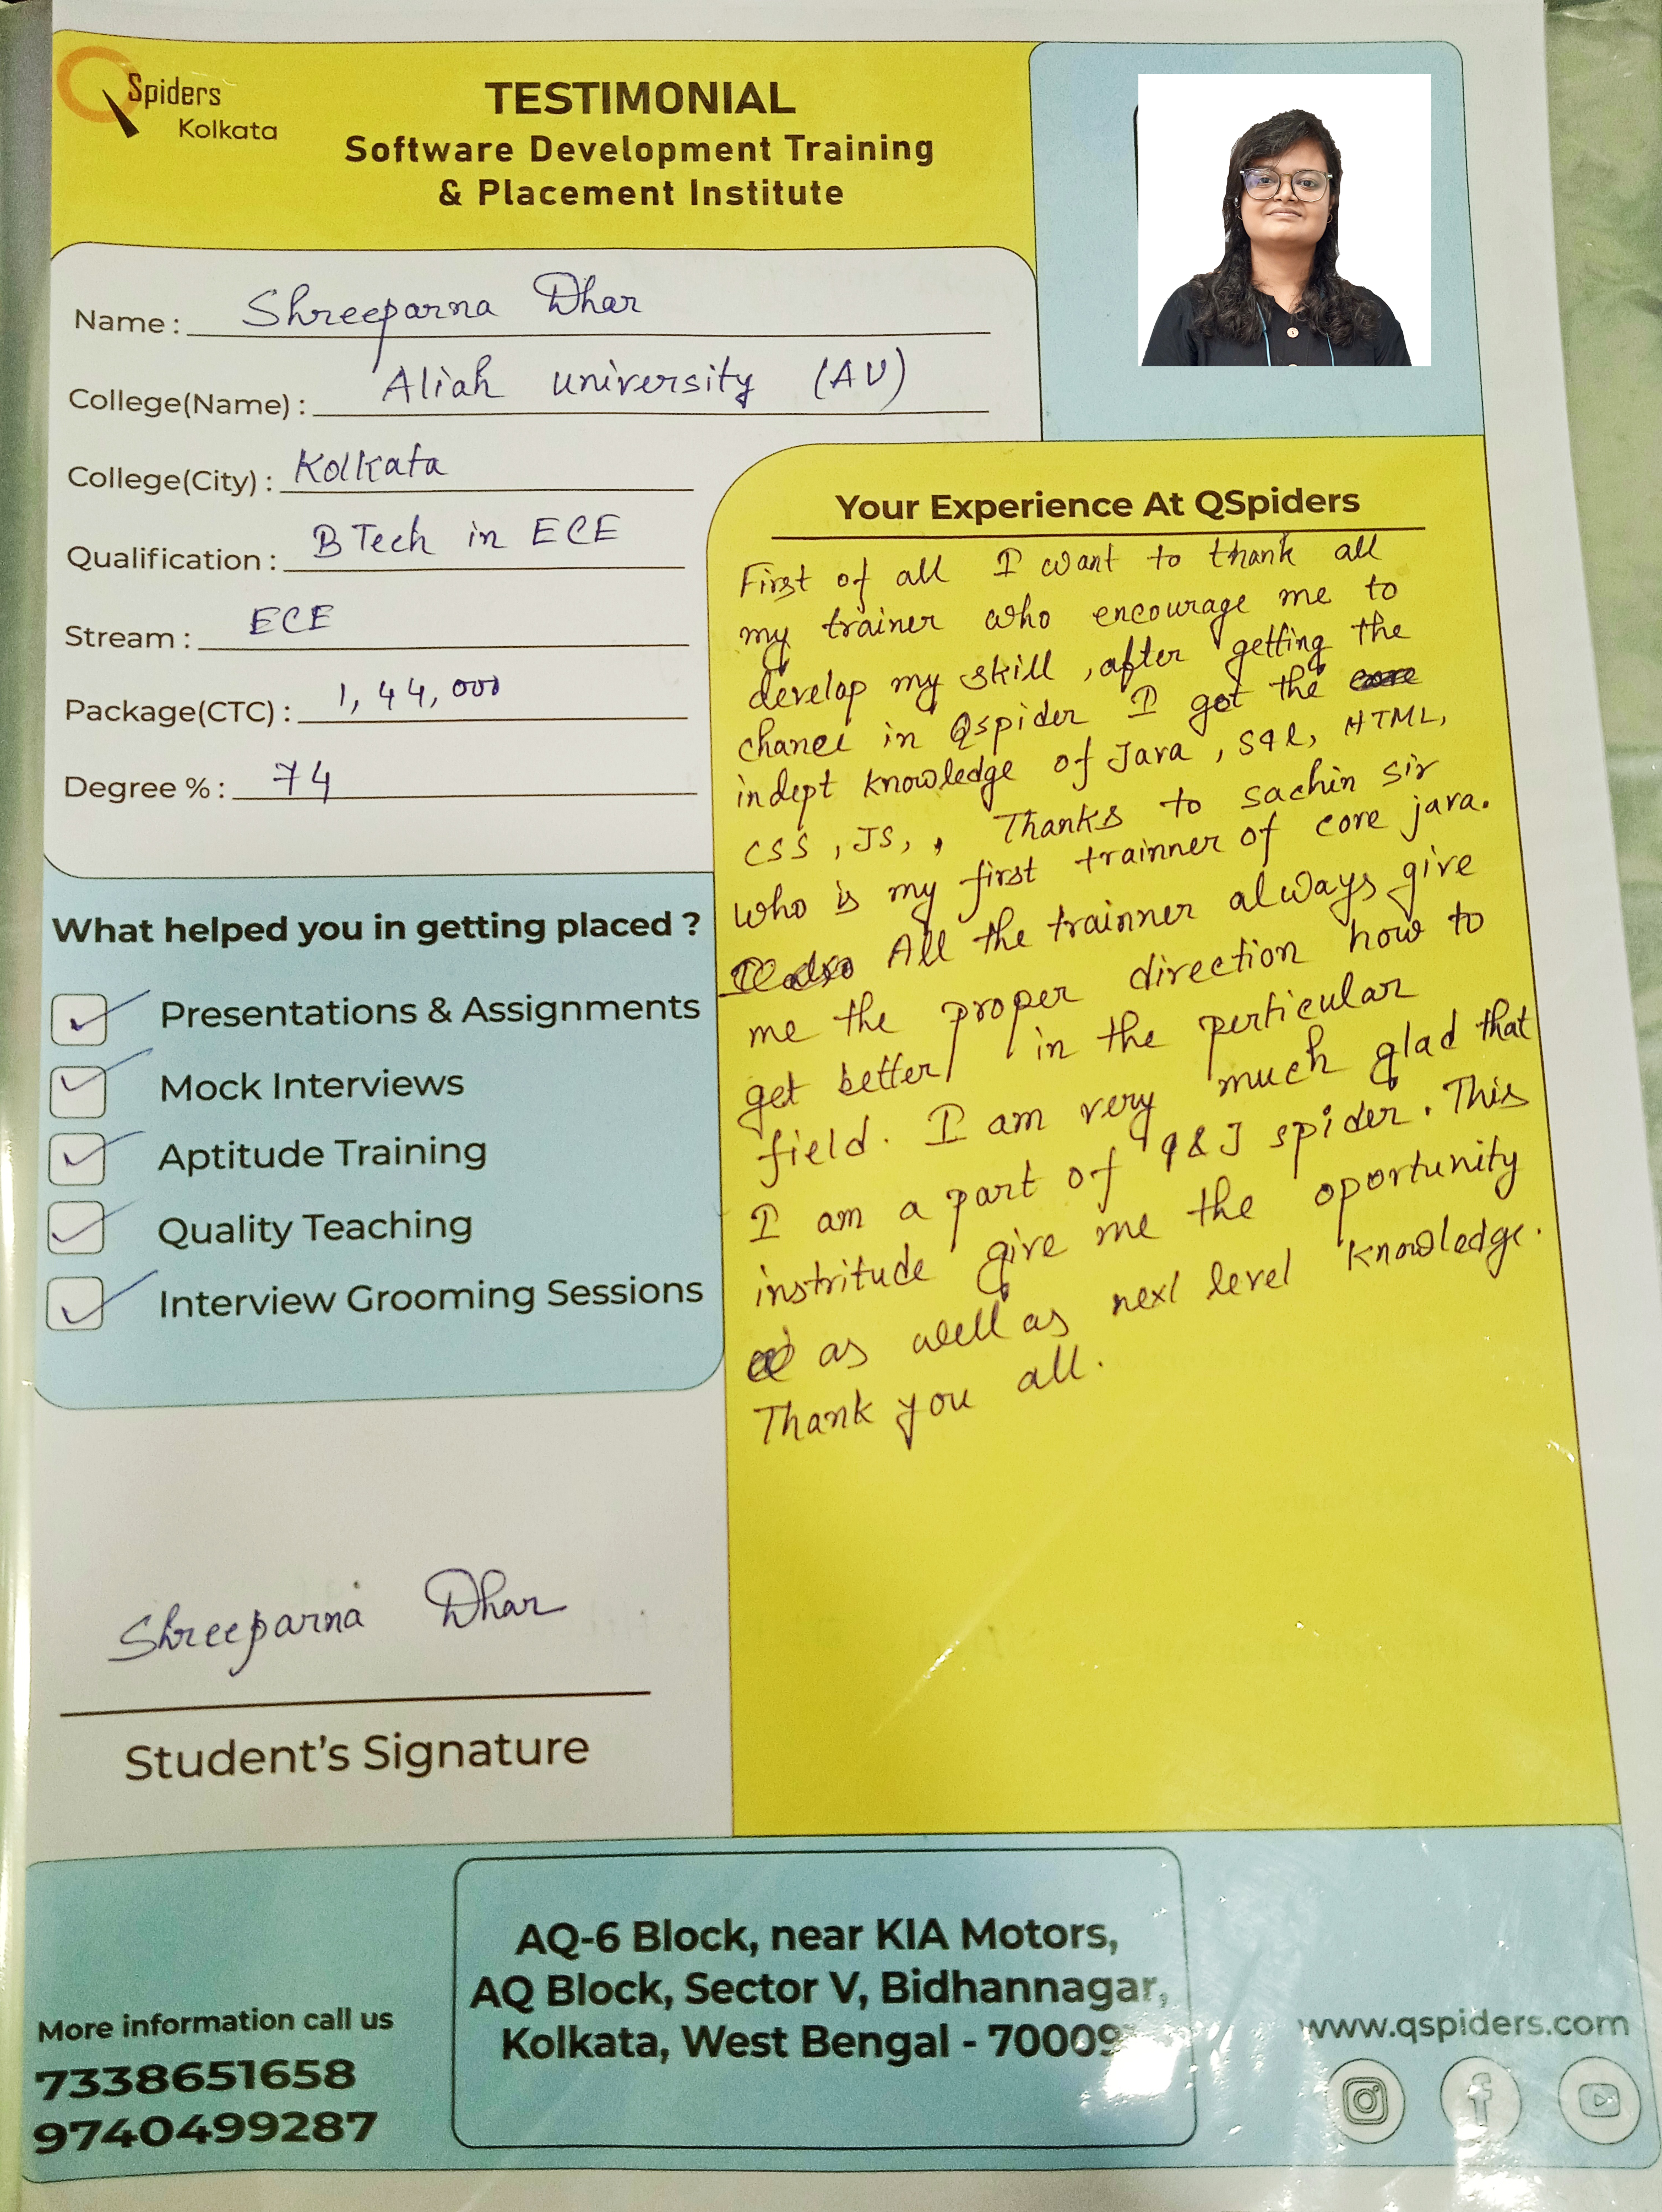 Spiders
Kolkata
TESTIMONIAL
Software Development Training
& Placement Institute
Name : Shreeparna Dhar
College(Name) : Aliah university (AU)
College(City) : Kolkata
Qualification : B Tech in ECE
Stream : ECE
Package(CTC) : 1,44,000
Degree % : 74
What helped you in getting placed ?
Presentations & Assignments
Mock Interviews
Aptitude Training
Quality Teaching
Interview Grooming Sessions
Shreeparna Dhar
Student's Signature
Your Experience At QSpiders
First of all I want to thank all
my trainer who encourage me to
develop my skill , after getting the
chance in Qspider I got the
indept knowledge of Java , SQL, HTML,
CSS , JS, , Thanks to Sachin sir
who is my first trainner of core java.
All the trainner always give
me the proper direction how to
get better in the perticular
field. I am very much glad that
I am a part of Q & J spider. This
institude give me the oportunity
as well as next level knowledge.
Thank you all.
More information call us
7338651658
9740499287
AQ-6 Block, near KIA Motors,
AQ Block, Sector V, Bidhannagar,
Kolkata, West Bengal -
www.qspiders.com